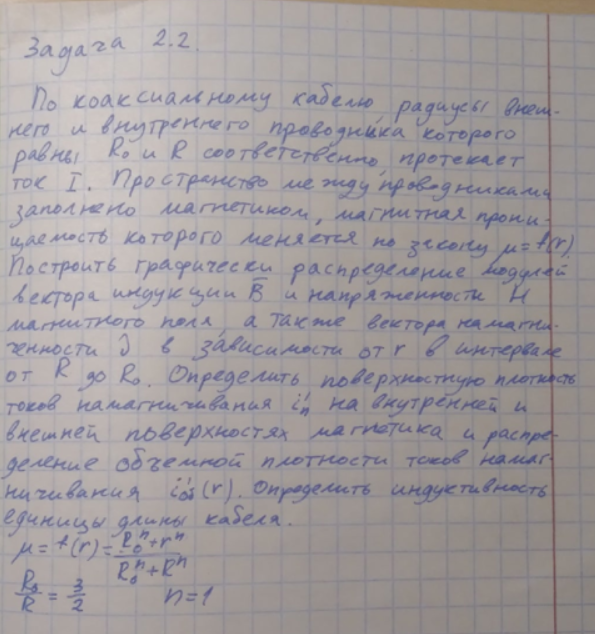 Задача 2.2.
По коаксиальному кабелю, радиусы внеш-
него и внутреннего проводника которого
равны R₀ и R соответственно, протекает
ток I. Пространство между проводниками
заполнено магнетиком, магнитная прони-
цаемость которого меняется по закону μ=f(r).
Построить графически распределение модулей
вектора индукции B̅ и напряженности H
магнитного поля, а также вектора намагни-
ченности J в зависимости от r в интервале
от R до R₀. Определить поверхностную плотность
токов намагничивания i'ₙ на внутренней и
внешней поверхностях магнетика и распре-
деление объемной плотности токов намаг-
ничивания i'об(r). Определить индуктивность
единицы длины кабеля.
μ = f(r) = (R₀ⁿ+rⁿ)/(R₀ⁿ+Rⁿ)
R₀/R = 3/2 n=1